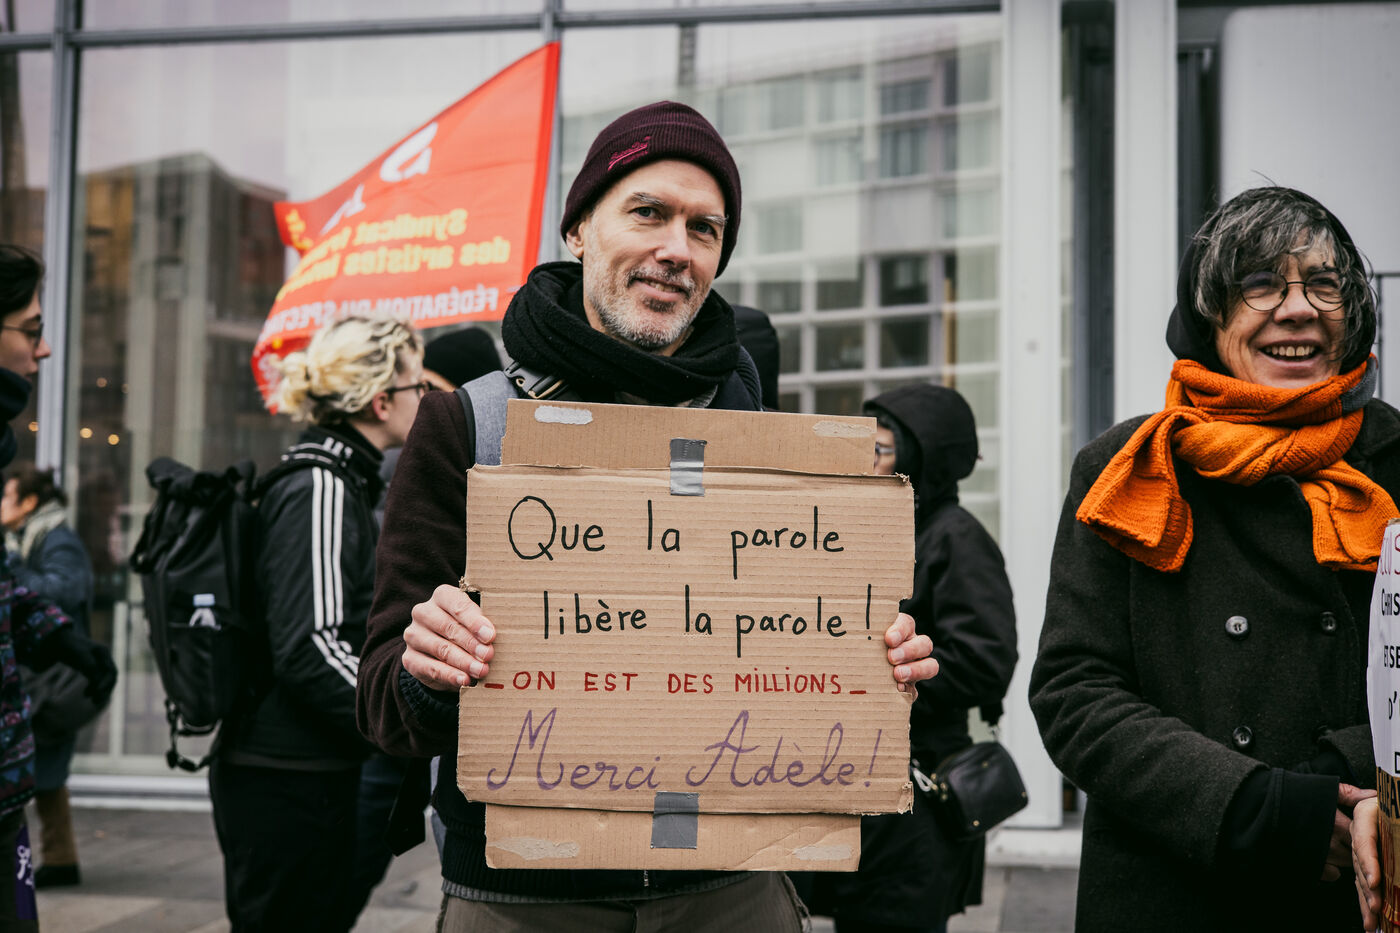 Syndicat
des artistes
FÉDÉRATION DU SPECTACLE
Que la parole
libère la parole !
_ON EST DES MILLIONS_
Merci Adèle!